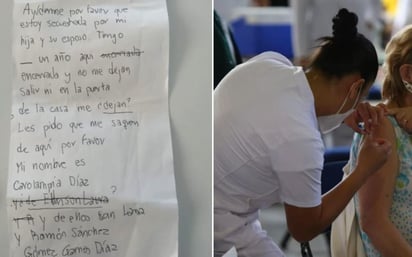 Ayúdenme por favor que
estoy secuestrada por mi
hija y su esposo. Tengo
__ un año aquí encerrada
encerrada y no me dejan
salir ni en la puerta
de la casa me ¿dejan?
Les pido que me saquen
de aquí por favor
Mi nombre es
Carolampia Díaz
y de Edirson Laura ?
y de ellos son Lana
y Ramón Sánchez
Gómez Gomes Díaz